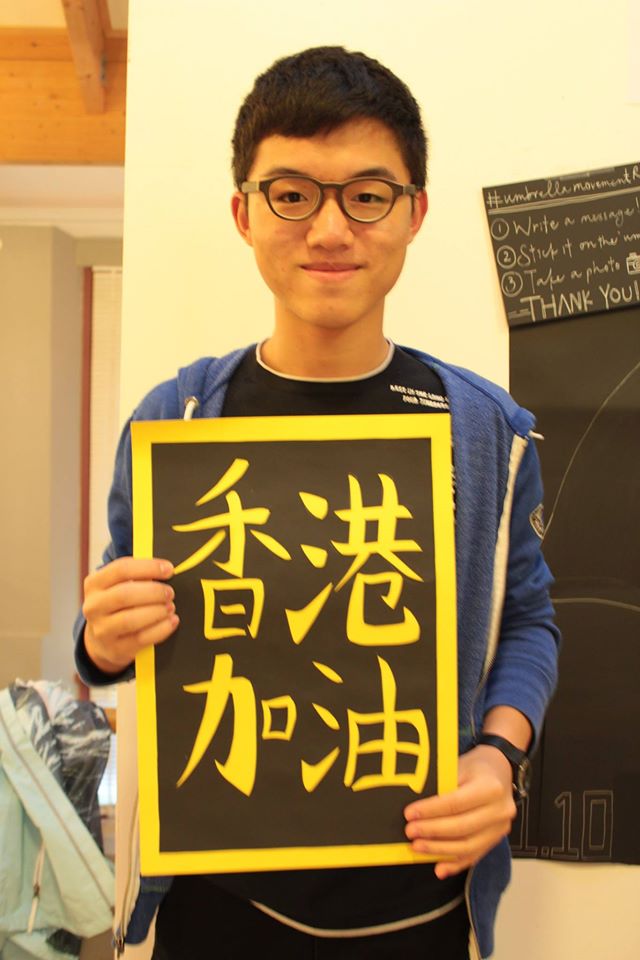 香港
加油
#umbrellamovement
① Write a message!
② Stick it on the um
③ Take a photo
THANK YOU!
1.10